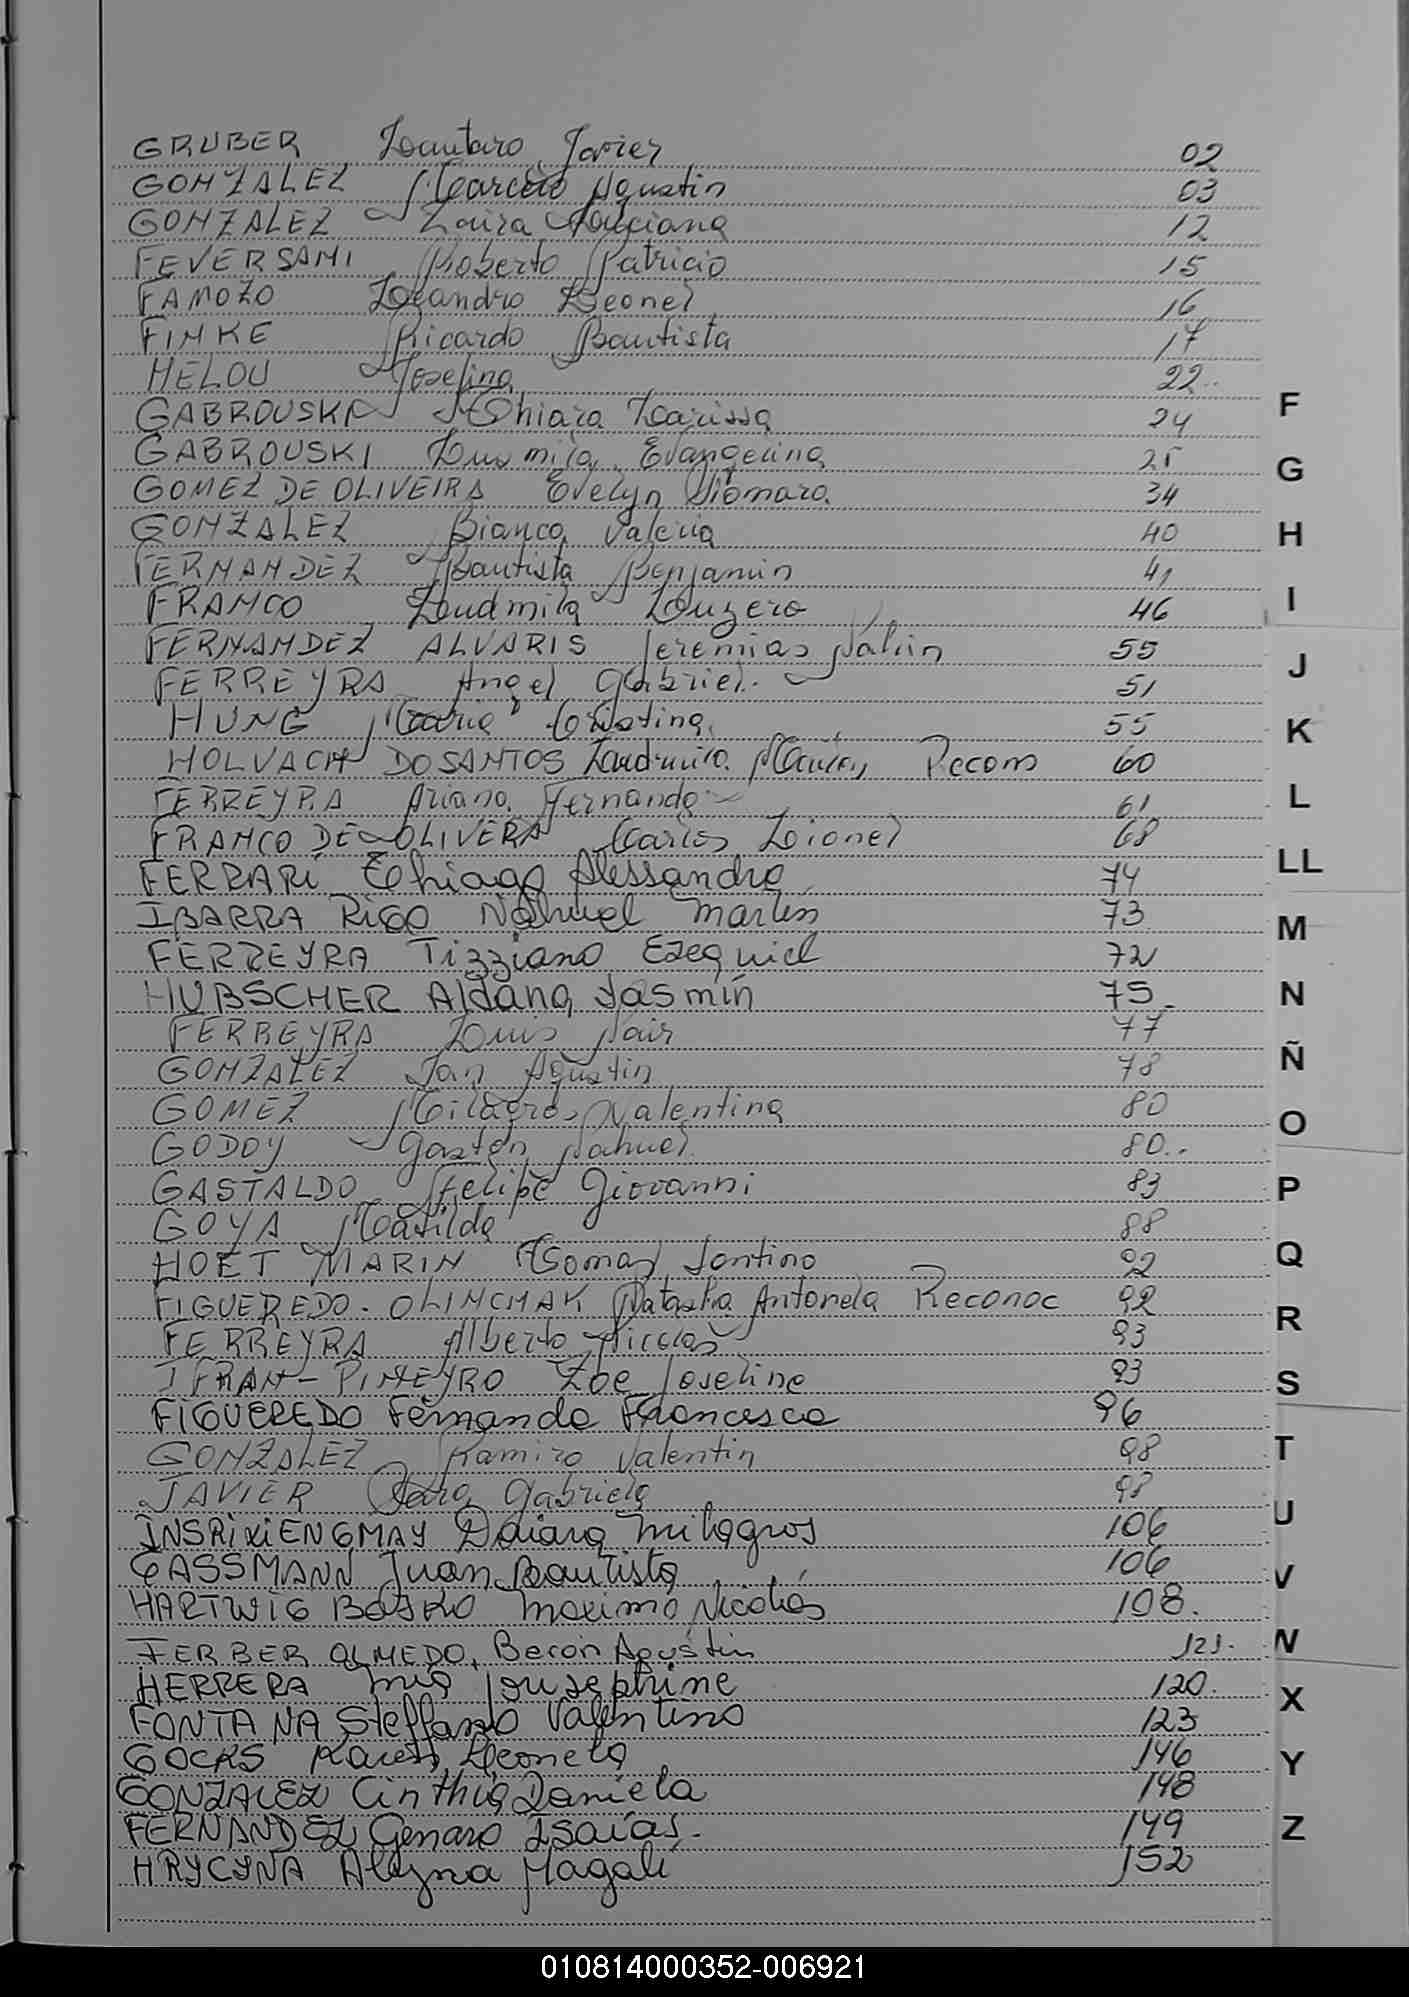 GRUBER Lautaro Javier 02
GONZALEZ Marcelo Agustin 03
GONZALEZ Luciana 12
FEVERSANI Roberto Patricio 15
FAMOZO Leandro Leonel 16
FINKE Ricardo Bautista 17
HELOU Joselina 22
GABROUSKI Chiara Larissa 24
GABROUSKI Luzmila Evangelina 25
GOMEZ DE OLIVEIRA Evelyn Xiomara 34
GONZALEZ Bianca Valeria 40
FERNANDEZ Bautista Benjamin 41
FRANCO Ludmila Luzero 46
FERNANDEZ ALVARIS Jeremias 55
FERREYRA Angel Gabriel 51
HUNG Maria Cristina 55
HOLVACH DO SANTOS Recom 60
FERREYRA Ariana Fernanda 61
FRANCO DE OLIVERA Carlos Lionel 68
FERRARI Thiago Alessandro 74
IBARRA RIGO Nahuel Martin 73
FERREYRA Tizziano Ezequiel 72
HUBSCHER Aldana Jasmin 75
FERREYRA Luis Nair 77
GONZALEZ Ian Agustin 78
GOMEZ Milagros Valentina 80
GODOY Gaston Nahuel 80
GASTALDO Felipe Giovanni 83
GOYA Matilda 88
HOET MARIN Tomas Santino 92
FIGUEREDO. OLINCHAK Natasha Antonela Reconoc 92
FERREYRA Alberto Nicolas 93
IFRAN - PINEYRO Zoe Joseline 93
FIGUEREDO Fernando Francesco 96
GONZALEZ Ramiro Valentin 98
JAVIER Sara Gabriela 98
Daiana Milagros 106
GASSMANN Juan Bautista 106
HARTWIG Maximo Nicolás 108.
FERBER OLMEDO, Agustin 121.
HERRERA Mia Jousephine 120.
FONTANA Steffano Valentino 123
GOCKS Leonela 146
GONZALEZ Cinthia Daniela 148
FERNANDEZ Genaro Isaías. 149
HRYCYNA Magali 152
F
G
H
I
J
K
L
LL
M
N
Ñ
O
P
Q
R
S
T
U
V
W
X
Y
Z
010814000352-006921